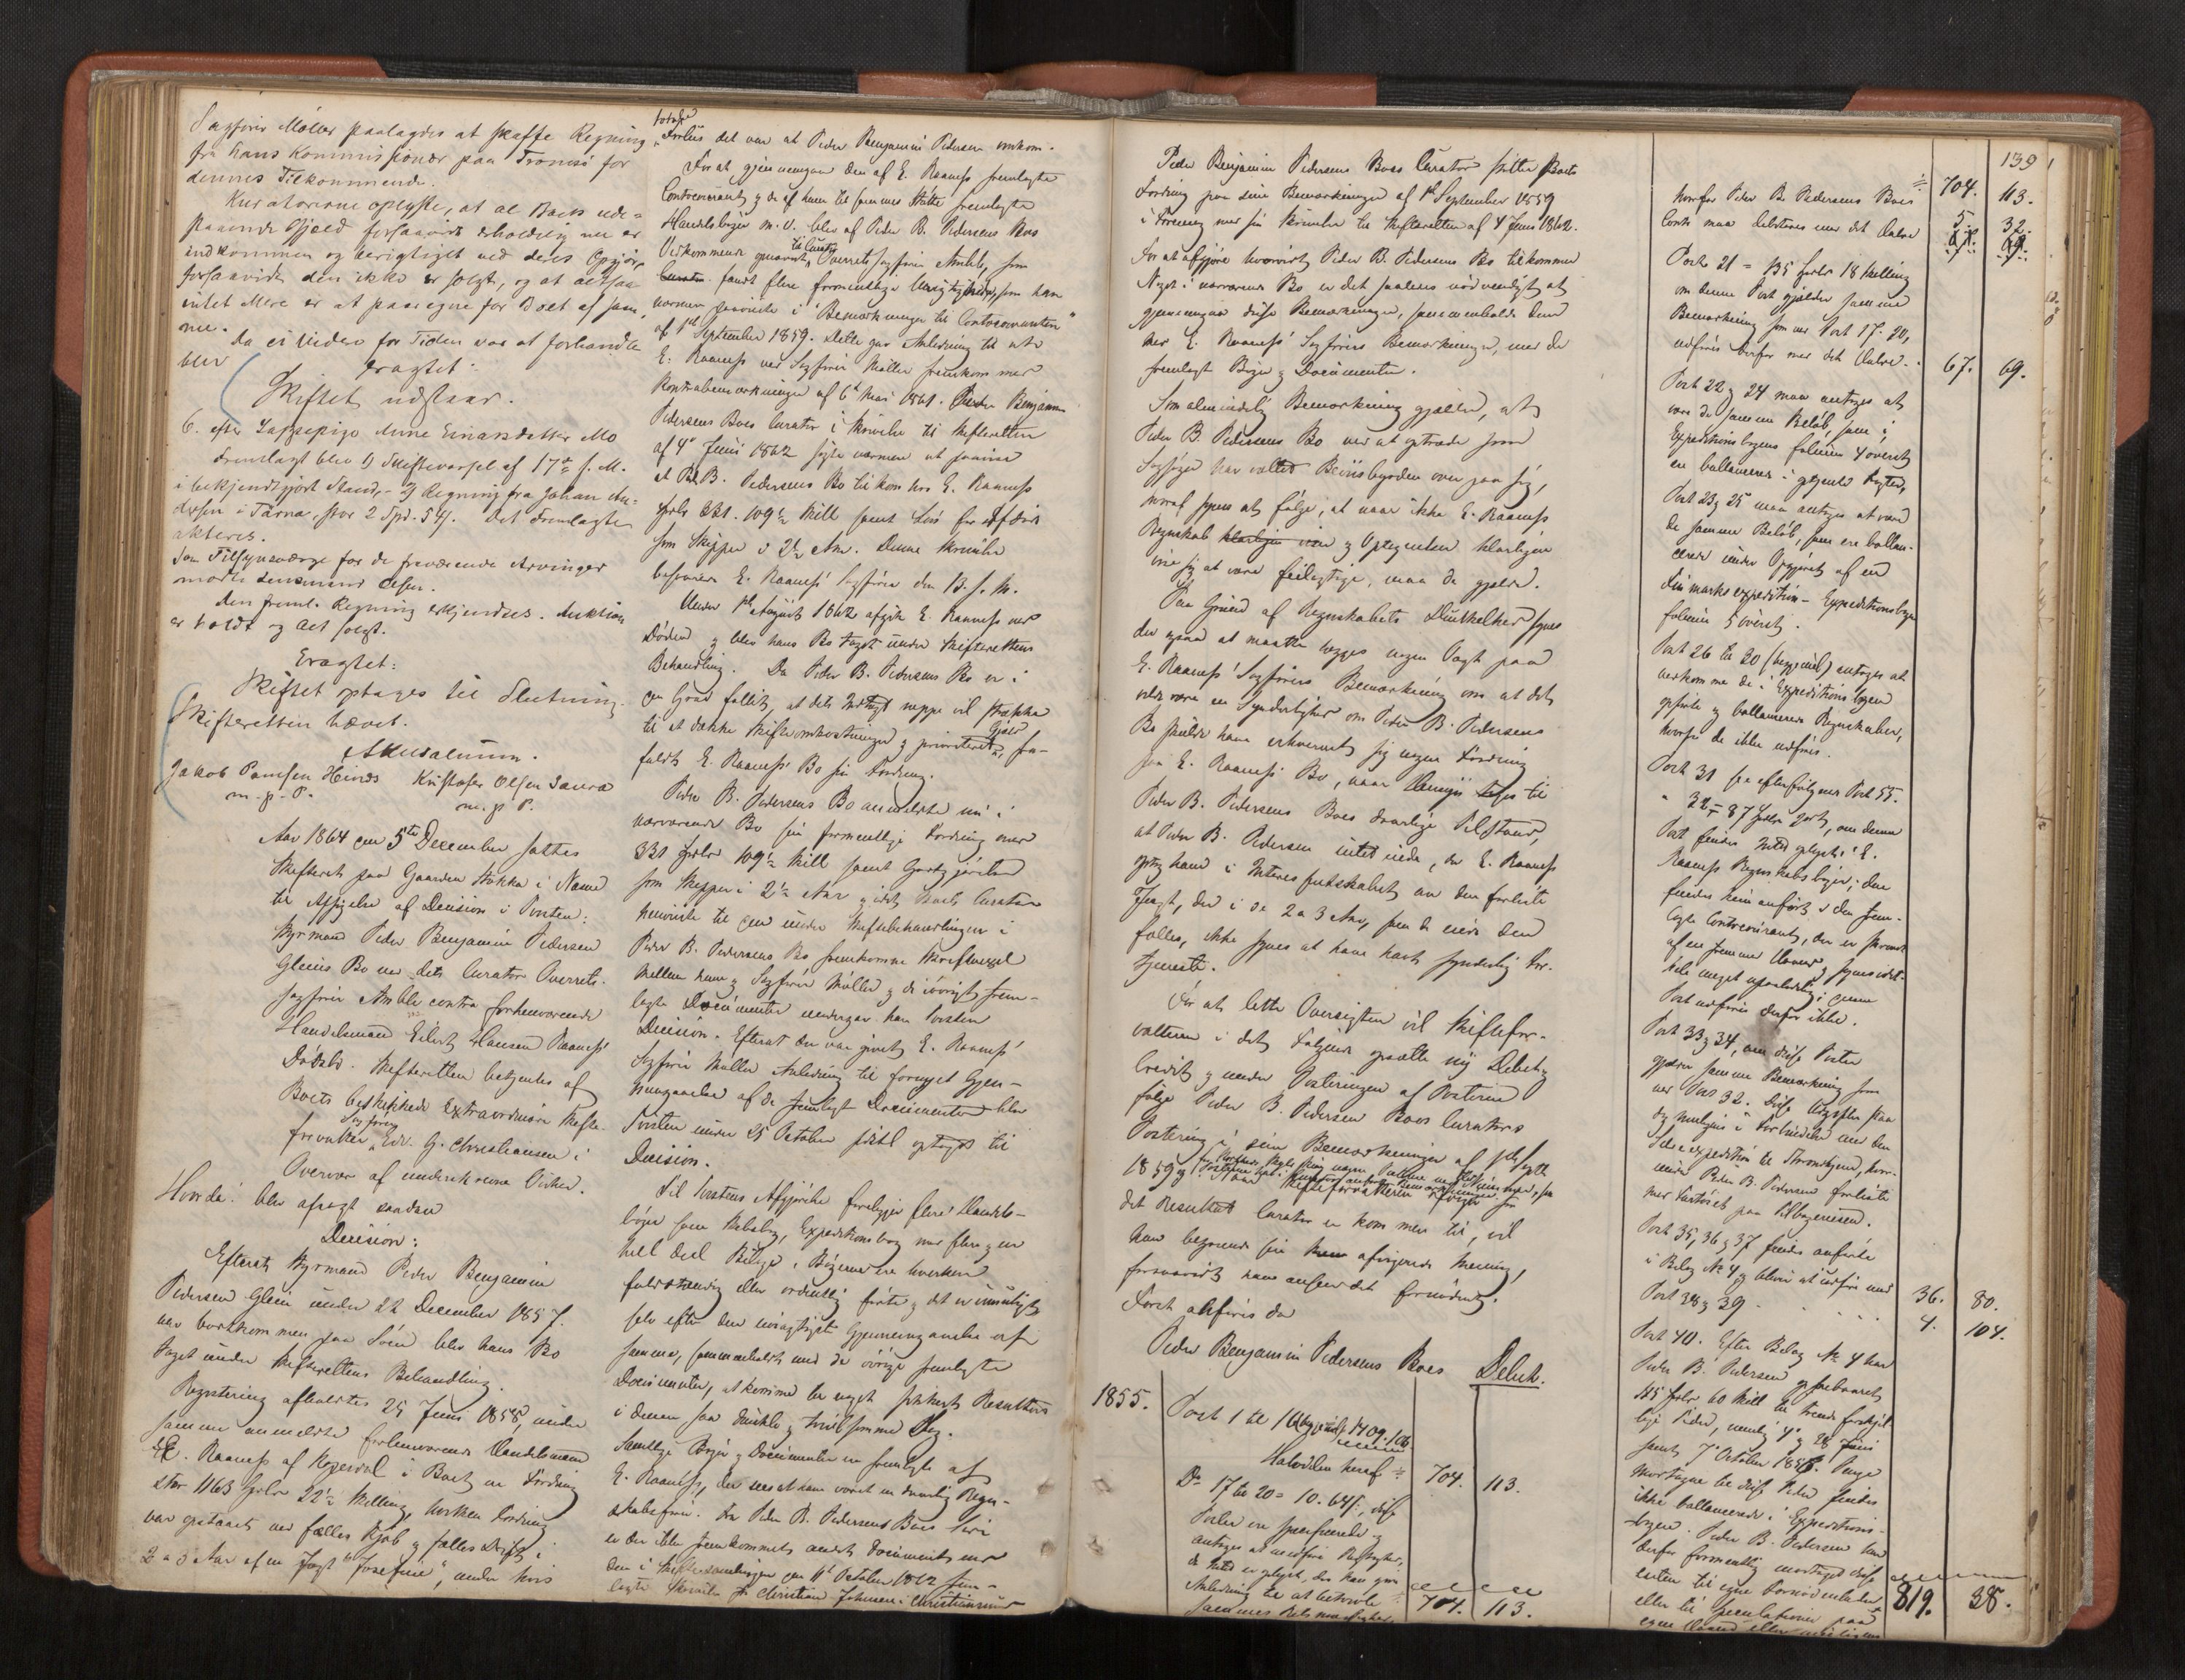 Sagfører Møller paalagdes at skaffe Regning
fra hans Kommissionær paa Tromsø for
dennes Tilkommende.
Kuratorerne oplyste, at al Boets ude-
staaende Gjæld forsaavidt erholdelig nu er
indkommen og berigtiget ved dets Opgjør,
forsaavidt den ikke er solgt, og at altsaa
intet Mere er at paaregne for Boet af sam-
me.
Da ei videre for Tiden var at forhandle
blev
eragtet:
Skiftet udstaar.
6. efter Lappepige Anne Einarsdatter Mo
Fremlagt blev 1) Skiftevarsel af 17de f. M.
i bekjendtgjort Stand, - 2) Regning fra Johan An-
dersen i Tärna, stor 2 Spd. 54 ß. Det Fremlagte
akteres.
Som Tilsynsværge for de fraværende Arvinger
mødte Lensmand Olsen.
Den freml. Regning erkjendtes. Auktion
er holdt og Alt solgt.
Eragtet:
Skiftet optages til Slutning.
Skifteretten hævet.
Amundsen.
Jakob Paulsen Hinds Kristofer Olsen Saura
m. p. P. m. p. P.
Aar 1864 den 5te December sattes
Skifteret paa Gaarden Stokka i Næsne
til Afsigelse af Decision i Tvisten:
Styrmand Peder Benjamin Pedersen
Gleins Bo ved dets Curator Overrets-
sagfører Amble contra forhenværende
Handelsmand Eilert Hansen Raanæss'
Dødsbo. Skifteretten betjentes af
Boets beskikkede extraordinære Skifte-
forvalter, Sagfører Edv. G. Christiansen i
Overvær af underskrevne Vidner.
Hvorda: blev afsagt saadan
Decision:
Efterat Styrmand Peder Benjamin
Pedersen Glein under 22 December 1857.
var bortkommen paa Søen blev hans Bo
taget under Skifterettens Behandling.
Registrering afholdtes 25 Juni 1858, under
samme anmeldte forhenværende Handelsmand
E. Raanæss af Kopervd i Boet en Fordring
stor 1163 Spdlr 22½ Skilling, hvilken Fordring
var opstaaet ved fælles Kjøb og fælles Drift i
2 a 3 Aar af en Jagt "Josefine", under hvis
totale
Forliis det var at Peder Benjamin Pedersen omkom.
For at gjennemgaa den af E. Raanæss fremlagte
Contocourant og de af ham til sammes Støtte fremlagte
Handelsbøger m. v. blev af Peder B. Pedersens Boes
Vedkommende opnævnt til Curator Overretssagfører Amble, som
fandt flere formentlige Urigtigheder, som han
nærmere paaviste i "Bemærkninger til Contocouranten"
af 1ste September 1859. Dette gav Anledning til at
E. Raanæss ved Sagfører Møller fremkom med
Kontrabemærkninger af 6te Mai 1861. Peder Benjamin
Pedersens Boes Curator i Skrivelse til Skifteretten
af 4de Juni 1862 søgte nærmere at paavise
at Ped. B. Pedersens Bo tilkom hos E. Raanæss
Spdlr 331. 109½ Skill samt Løn for Afdøde
som Skipper i 2½ Aar. Denne Skrivelse
besvarede E. Raanæss' Sagfører den 13. s. M.
Under 1ste August 1862 afgik E. Raanæss ved
Døden og blev hans Bo taget under Skifterettens
Behandling. Da Peder B. Pedersens Bo er i
en Grad fallit, at dets Indtægt neppe vil strække
til at dække Skifteomkostninger og prioriteret Gjæld, fra-
faldt E. Raanæss' Bo sin Fordring.
Peder B. Pedersens Bo anmeldte nu i
nærværende Bo sin formentlige Fordring med
331 Spdlr 109½ Skill samt Godtgjørelse
som Skipper i 2½ Aar og idet Boets Curator
henviste til den under Skiftebehandlingen i
Peder B. Pedersens Bo fremkomne Skriftvexel
mellem ham og Sagfører Møller og de iøvrigt frem-
lagte Documenter undergav han Tvisten
Decision. Efterat der var givet E. Raanæss'
Sagfører Møller Anledning til fornyet Gjen-
nemgaaelse af de fremlagte Documenter blev
Tvisten under 25 October sidstl optaget til
Decision.
Til Tvistens Afgjørelse foreligger flere Handels-
bøger som Klatbog, Expeditionsbog med flere og en
heel Deel Bilage, Bøgerne ere hverken
fuldstændig eller ordentlig førte og det er umuligt
selv efter den nøiagtigste Gjennemgaaelse af
samme, sammenholdt med de øvrige fremlagte
Documenter, at komme til noget sikkert Resultat
i denne saa dunkle og tvivlsomme Sag.
Samtlige Bøger og Documenter er fremlagte af
E. Raanæss, der sees at have været en daarlig Regn-
skabsfører. Fra Peder B. Pedersens Boes Side
er der ikke fremkommet andet Document end
den i Skiftesamlingen den 11te October 1862 frem-
lagte Skrivelse fra Christian Johnsen i Christianssund
139
Peder Benjamin Pedersens Boes Curator støtter Boets
Fordring paa sine Bemærkninger af 1ste September 1859
i Forening med sin Skrivelse til Skifteretten af 4 Juni 1862.
For at afgjøre hvorvidt Peder B. Pedersens Bo tilkommer
Noget i nærværende Bo er det saaledes nødvendigt at
gjennemgaa disse Bemærkninger, sammenholde dem
med E. Raanæss' Sagførers Bemærkninger, med de
fremlagte Bøger og Documenter.
Som almindelig Bemærkning gjælder, at
Peder B. Pedersens Bo ved at optræde som
Sagsøger har væltet Beviisbyrden over paa sig,
hvoraf synes at følge, at naar ikke E. Raanæss
Regnskab og Optegnelser klarligen
vise sig at være feilagtige, maa de gjælde.
Paa Grund af Regnskabets Dunkelhed synes
der ogsaa at maatte lægges nogen Vægt paa
E. Raanæss' Sagførers Bemærkning om at det
vilde være en Synderlighed om Peder B. Pedersens
Bo skulde have erhvervet sig nogen Fordring
paa E. Raanæss' Bo, naar Hensyn tages til
Peder B. Pedersens Boes daarlige Tilstand,
at Peder B. Pedersen intet eiede, da E. Raanæss
optog ham i Interessentskabet om den forliste
Jagt, der i de 2 a 3 Aar, som de eiede den
fælles, ikke synes at have havt synderlig For-
tjeneste.
For at lette Oversigten vil Skiftefor-
valteren i det Følgende opsætte ny Debet og
Credit og under Posteringen af Posterne
følge Peder B. Pedersens Boes Curators
Postering i sine Bemærkninger af 1ste Septbr
1859 og
det Resultat Curator er kommen til, vil
han begrunde sin afvigende Mening,
forsaavidt han anseer det fornødent.
Først anføres da
Peder Benjamin Pedersens Boes Debet.
1855. Post 1 til 16 1409. 106
Halvdelen heraf 704. 113.
Do 17 til 20 = 10. 64 ß, disse
Poster ere specificerede og
antages at medføre Rigtighed,
da Intet er oplyst, der kan give
Anledning til at betvivle
sammes Retmæssighed 704. 113.
704. 113.
hvorfor Peder B. Pedersens Boes
Conto maa debiteres med det Halve 5. 32.
Post 21 = 135 Spdlr 18 Skilling
om denne Post gjælder samme
Bemærkning som ved Post 17-20,
udføres derfor med det Halve. 67. 69.
Post 22 og 24 maa antages at
være de samme Beløb, som i
Expeditionsbogens folium 4 øverst
er ballancerede i
Post 23 og 25 maa antages at være
de samme Beløb, som ere ballan-
cerede under Opgjøret af en
Finmarksexpedition - Expeditionsbogens
folium 5 øverst.
Post 26 til 30 (begge incl) antages at
vedkomme de i Expeditionsbogen
opførte og ballancerede Regnskaber,
hvorfor de ikke udføres.
Post 31 see efterfølgende Post 55.
" 32 = 37 Spdlr , om denne
Post findes Intet oplyst i E.
Raanæss Regnskabsbøger; den
findes kun anført i den frem-
lagte Contocourant, der er skrevet
af en fremmed Haand og synes
meget upaalidelig; denne
Post udføres derfor ikke.
Post 33 og 34, om disse Poster
gjælder samme Bemærkning som
ved Post 32.
Post 35, 36 og 37 findes anførte
i Bilag № 4 og bliver at udføre med 36. 80.
Post 38 og 39 4. 104.
Post 40. Efter Bilag № 4 har
Peder B. Pedersen
45 Spdlr 60 Skill til trende forskjel-
lige Tider, nemlig 4de og 28 Juni
samt 7de October 1856. Penge
modtagne til disse Tider findes
ikke ballancerede i Expeditions-
bogen. Peder B. Pedersen har
derfor formentlig modtaget disse
enten til egne Fornødenheder
eller til Speculationer paa
egen Haand eller
819. 38.